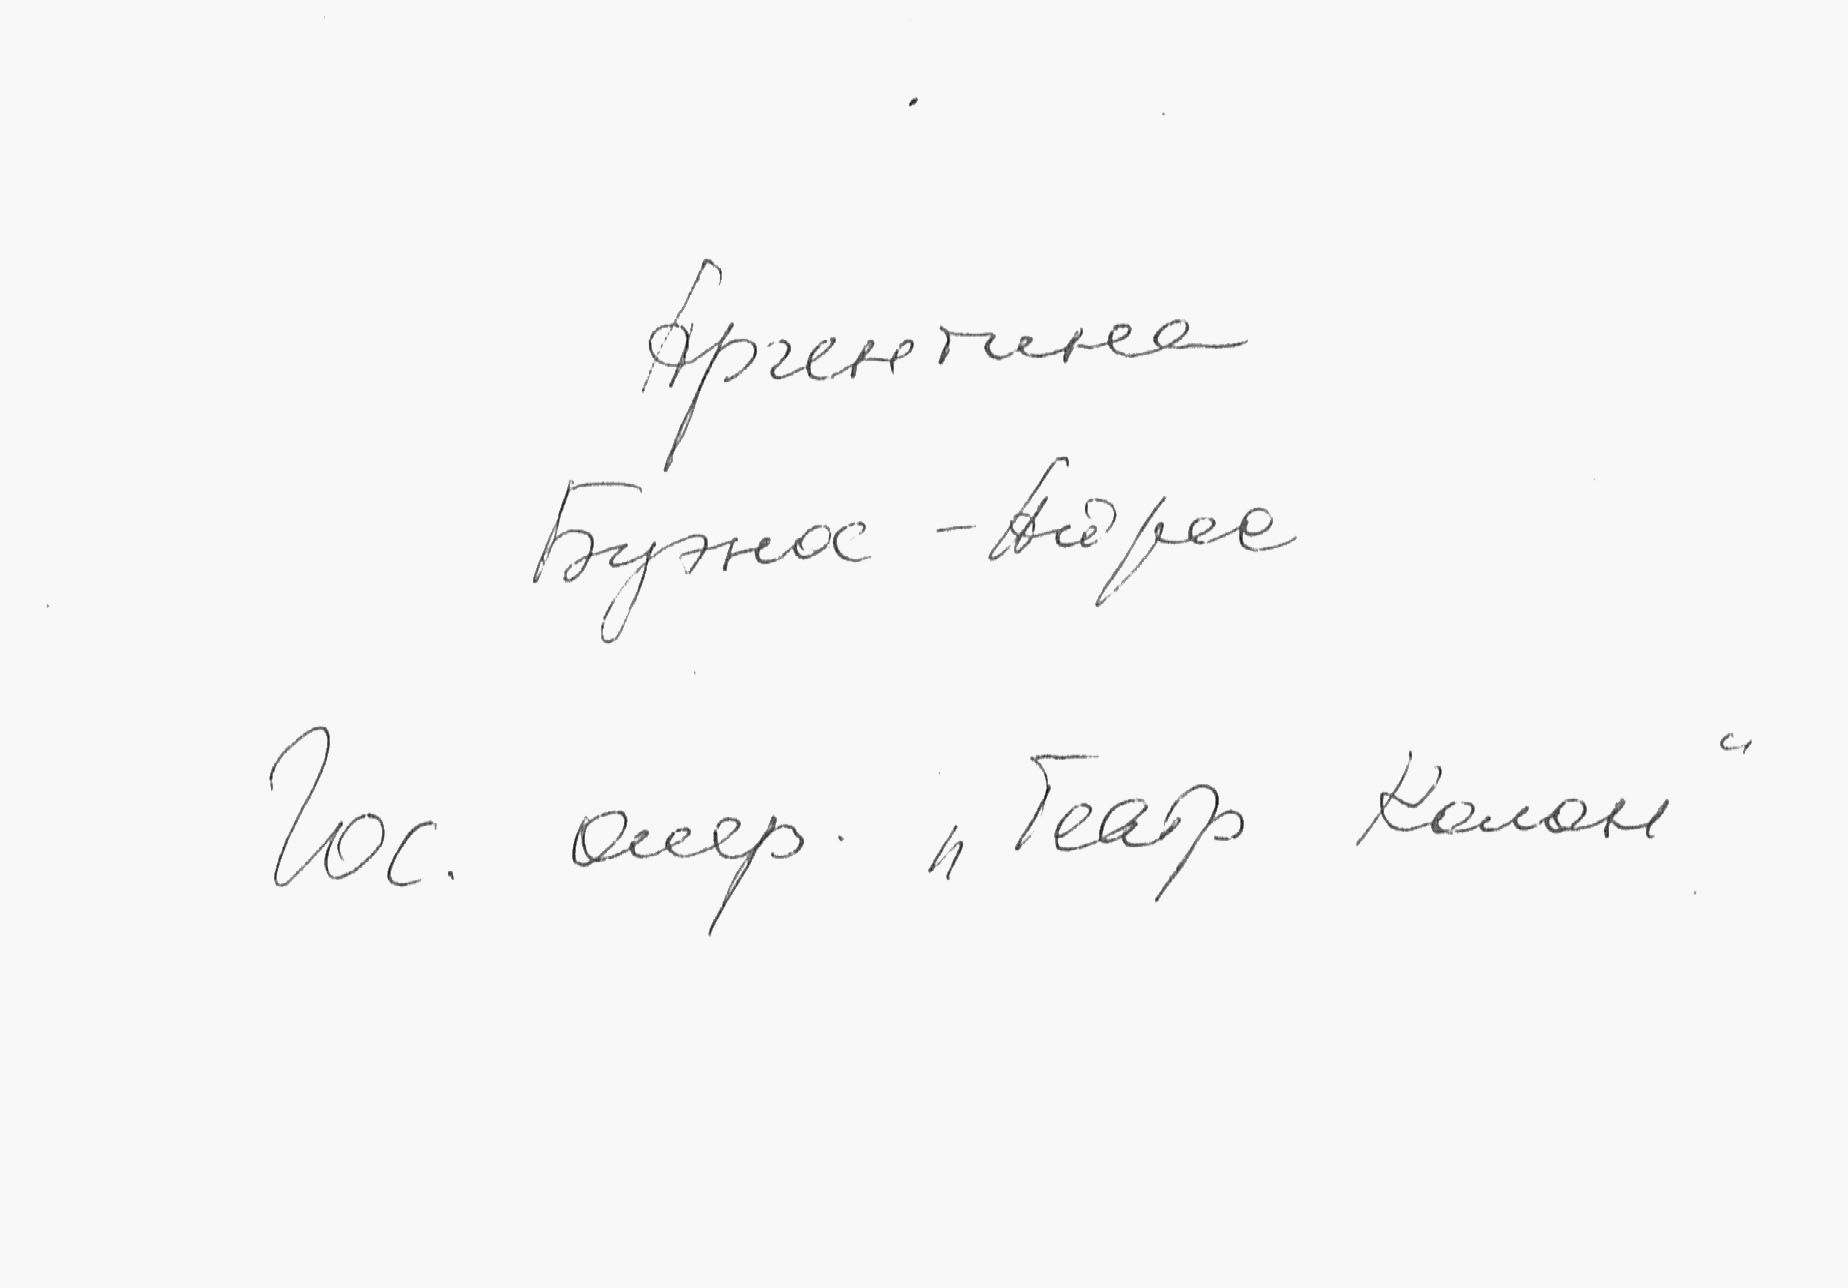 Аргентина
Буэнос - Айрес
Гос. опер. „Театр Колон“